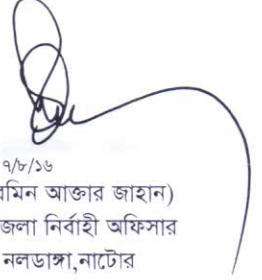 ৭/৮/১৬
রমিন আক্তার জাহান)
জেলা নির্বাহী অফিসার
নলডাঙ্গা,নাটোর